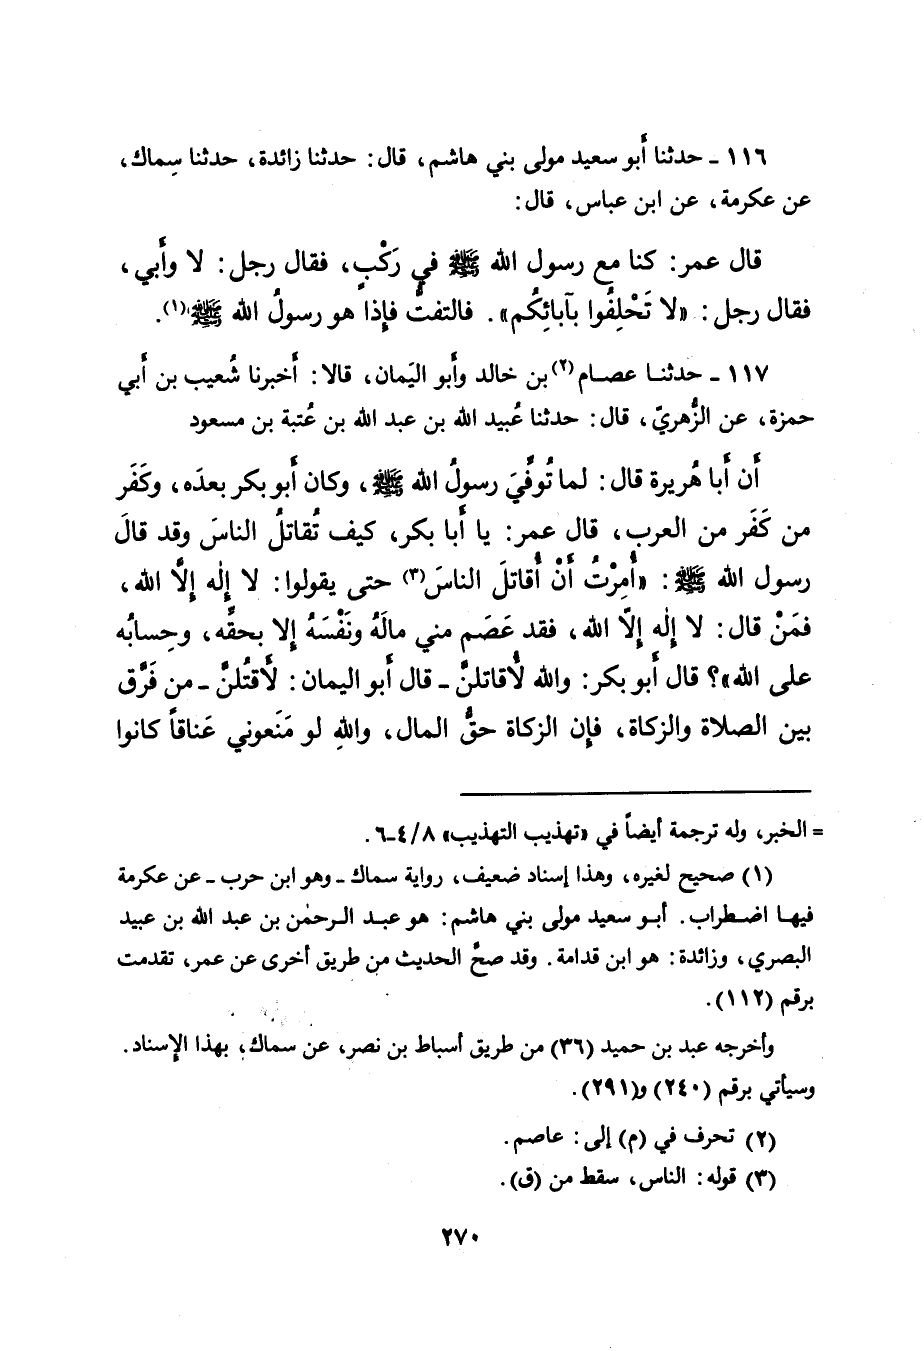 ١١٦ ـ حدثنا أَبو سعيد مولى بني هاشم، قال: حدثنا زائدة، حدثنا سِماك،
عن عكرمة، عن ابن عباس، قال:
قال عمر: كنا مع رسول الله ﷺ في رَكْبٍ، فقال رجل: لا وأَبي،
فقال رجل: «لا تَحْلِفُوا بآبائِكُم». فالتفتُّ فإذا هو رسولُ الله ﷺ(١).
١١٧ ـ حدثنا عصام(٢) بن خالد وأَبو اليَمان، قالا: أَخبرنا شُعيب بن أَبي
حمزة، عن الزُّهريّ، قال: حدثنا عُبيد الله بن عبد الله بن عُتبة بن مسعود
أَن أَبا هُريرة قال: لما تُوفِّيَ رسولُ الله ﷺ، وكان أَبو بكر بعدَه، وكَفَر
من كَفَر من العرب، قال عمر: يا أَبا بكر، كيف تُقاتلُ الناسَ وقد قالَ
رسول الله ﷺ: «أُمِرْتُ أَنْ أُقاتلَ الناسَ(٣) حتى يقولوا: لا إِلٰه إِلَّا الله،
فمَنْ قال: لا إِلٰه إِلّا الله، فقد عَصَم مني مالَهُ ونَفْسَهُ إلا بحقِّه، وحِسابُه
على الله»؟ قال أَبو بكر: والله لأُقاتلنَّ ـ قال أَبو اليمان: لأَقتُلنَّ ـ من فَرَّق
بين الصلاة والزكاة، فإن الزكاة حقُّ المال، واللهِ لو مَنَعوني عَناقاً كانوا
= الخبر، وله ترجمة أيضاً في «تهذيب التهذيب» ٨/ ٤ـ٦.
(١) صحيح لغيره، وهذا إسناد ضعيف، رواية سماك ـ وهو ابن حرب ـ عن عكرمة
فيها اضطراب. أبو سعيد مولى بني هاشم: هو عبد الرحمٰن بن عبد الله بن عبيد
البصري، وزائدة: هو ابن قدامة. وقد صحَّ الحديث من طريق أخرى عن عمر، تقدمت
برقم (١١٢).
وأخرجه عبد بن حميد (٣٦) من طريق أسباط بن نصر، عن سماك، بهذا الإسناد.
وسيأتي برقم (٢٤٠) و(٢٩١).
(٢) تحرف في (م) إلى: عاصم.
(٣) قوله: الناس، سقط من (ق).
٢٧٠